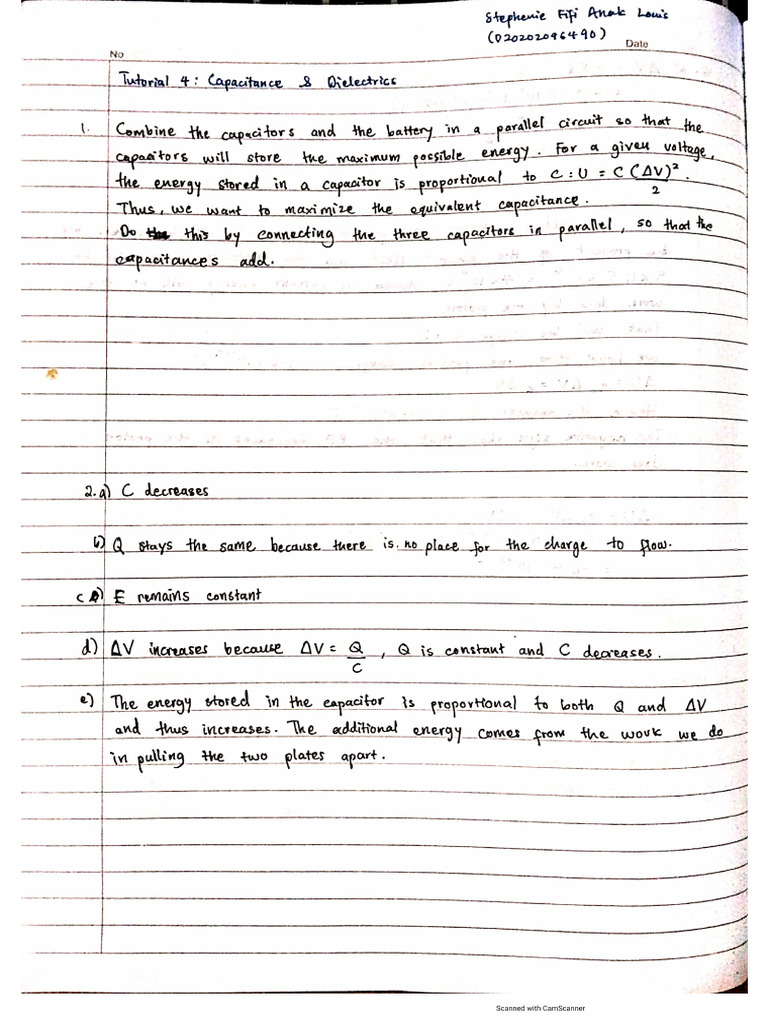 Stephenie Fifi Anak Louis
(020202096490)
No
Date
Tutorial 4: Capacitance & Dielectrics
1. Combine the capacitors and the battery in a parallel circuit so that the
capacitors will store the maximum possible energy. For a given voltage,
the energy stored in a capacitor is proportional to C : U = C (ΔV)²/2.
Thus, we want to maximize the equivalent capacitance.
Do this by connecting the three capacitors in parallel, so that the
capacitances add.
2.a) C decreases
b) Q stays the same because there is no place for the charge to flow.
c) E remains constant
d) ΔV increases because ΔV = Q/C, Q is constant and C decreases.
e) The energy stored in the capacitor is proportional to both Q and ΔV
and thus increases. The additional energy comes from the work we do
in pulling the two plates apart.
Scanned with CamScanner